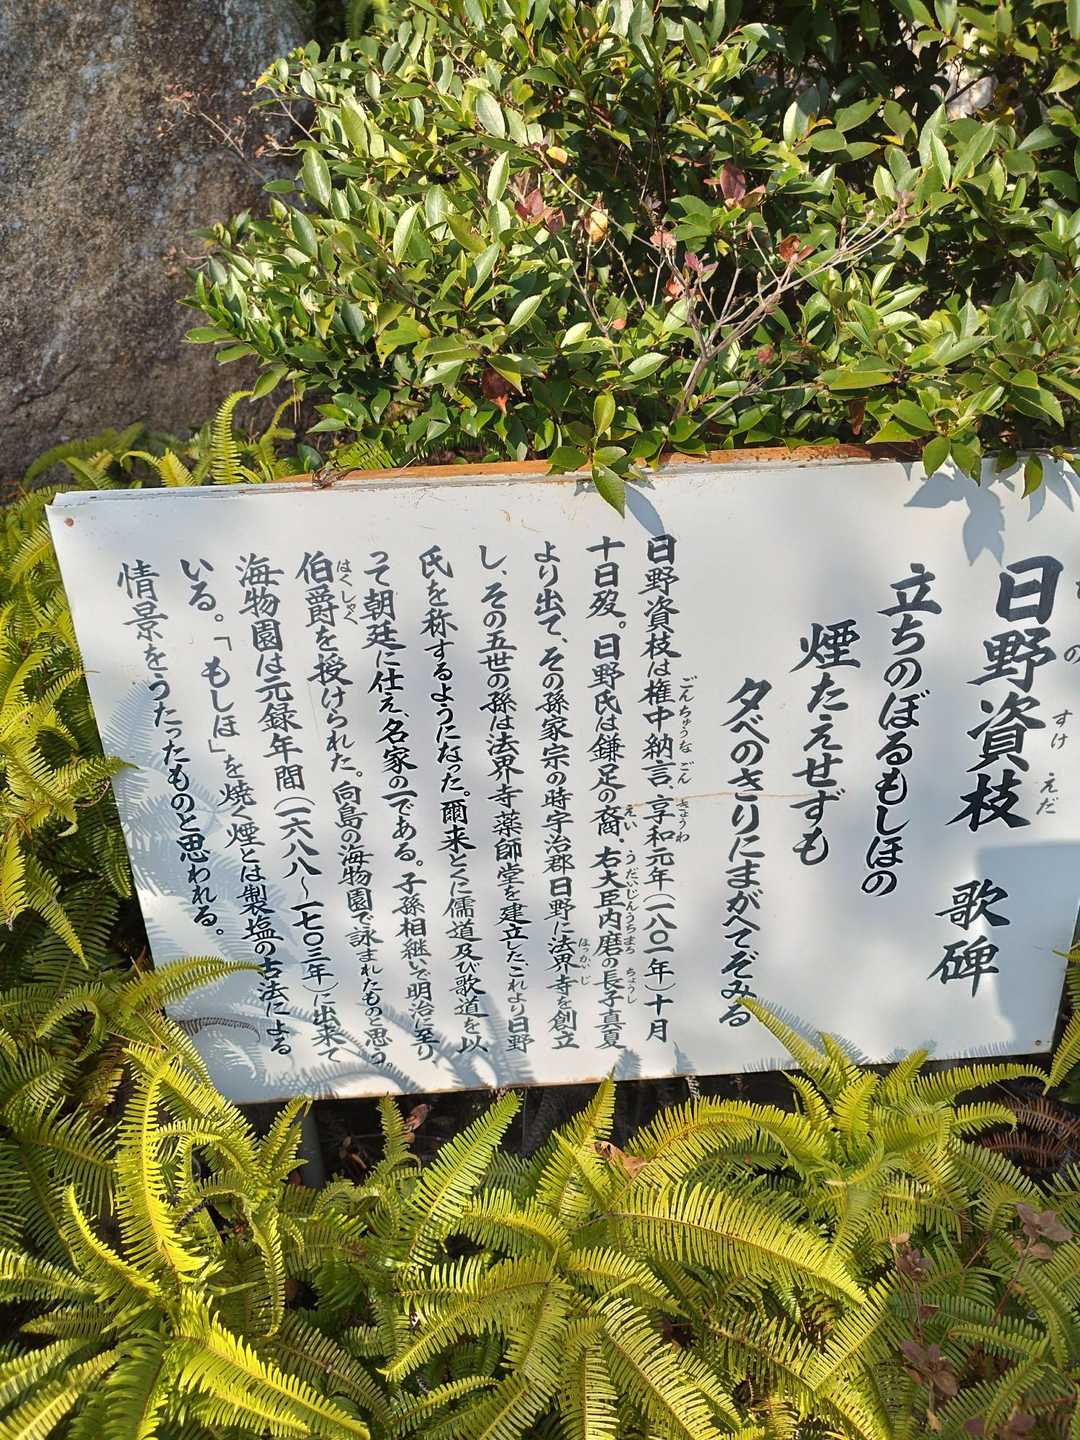 日野資枝 歌碑
立ちのぼるもしほの
煙たえせずも
夕べのきりにまがへてぞみる
日野資枝は権中納言、享和元年(一八〇一年)十月
十日歿。日野氏は鎌足の裔、右大臣内磨の長子真夏
より出て、その孫家宗の時宇治郡日野に法界寺を創立
し、その五世の孫は法界寺薬師堂を建立した。これより日野
氏を称するようになった。爾来とくに儒道及び歌道を以
って朝廷に仕え、名家の一である。子孫相継いで明治に至り
伯爵を授けられた。向島の海物園で詠まれたものと思う。
海物園は元録年間(一六八八〜一七〇三年)に出来て
いる。「もしほ」を焼く煙とは製塩の古法による
情景をうたったものと思われる。